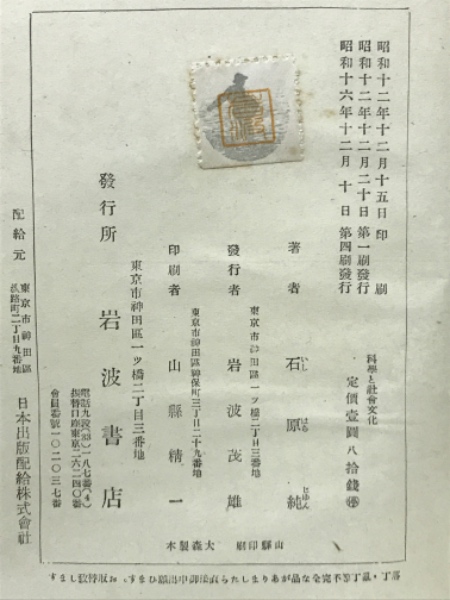 昭和十二年十二月十五日印刷
昭和十二年十二月二十日第一刷發行
昭和十六年十二月十日第四刷發行
科學と社會文化
定價壹圓八拾錢
著者 石原純
いし はら じゅん
東京市神田區一ツ橋二丁目三番地
發行者 岩波茂雄
東京市神田區神保町三丁目二十九番地
印刷者 山縣精一
東京市神田區一ツ橋二丁目三番地
發行所 岩波書店
電話九段(33)一八七番(4)
振替口座東京二六二四〇番
會員番號一〇二〇三七番
配給元 東京市神田區
淡路町二丁目九番地
日本出版配給株式會社
本製森大 刷印縣山